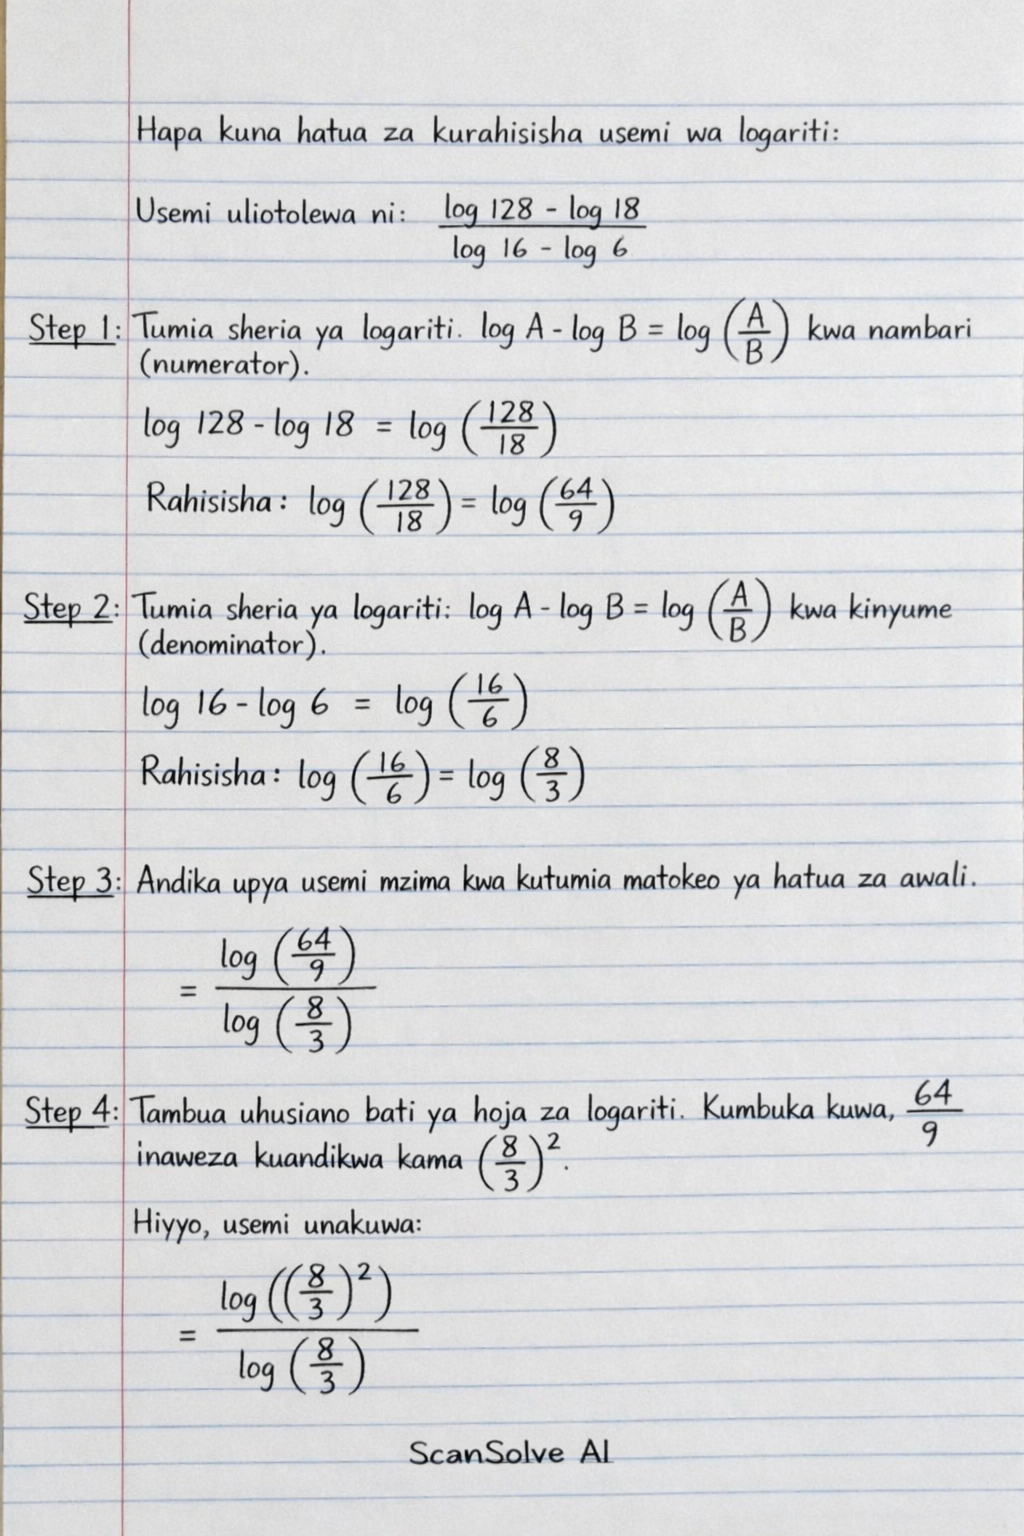 Hapa kuna hatua za kurahisisha usemi wa logariti:
Usemi uliotolewa ni: (log 128 - log 18) / (log 16 - log 6)
Step 1: Tumia sheria ya logariti. log A - log B = log (A/B) kwa nambari
(numerator).
log 128 - log 18 = log (128/18)
Rahisisha: log (128/18) = log (64/9)
Step 2: Tumia sheria ya logariti: log A - log B = log (A/B) kwa kinyume
(denominator).
log 16 - log 6 = log (16/6)
Rahisisha: log (16/6) = log (8/3)
Step 3: Andika upya usemi mzima kwa kutumia matokeo ya hatua za awali.
= log (64/9) / log (8/3)
Step 4: Tambua uhusiano bati ya hoja za logariti. Kumbuka kuwa, 64/9
inaweza kuandikwa kama (8/3)².
Hiyyo, usemi unakuwa:
= log ((8/3)²) / log (8/3)
ScanSolve AI